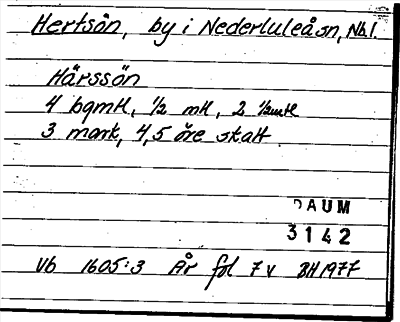 Hertsön, by i Nederluleå sn, Nb l.
Härssön
4 bgmtl, ½ mtl, 2 ½mtl
3 mark, 4,5 öre skatt
DAUM
3142
Vb 1605:3 År fol 7 v BH 1977